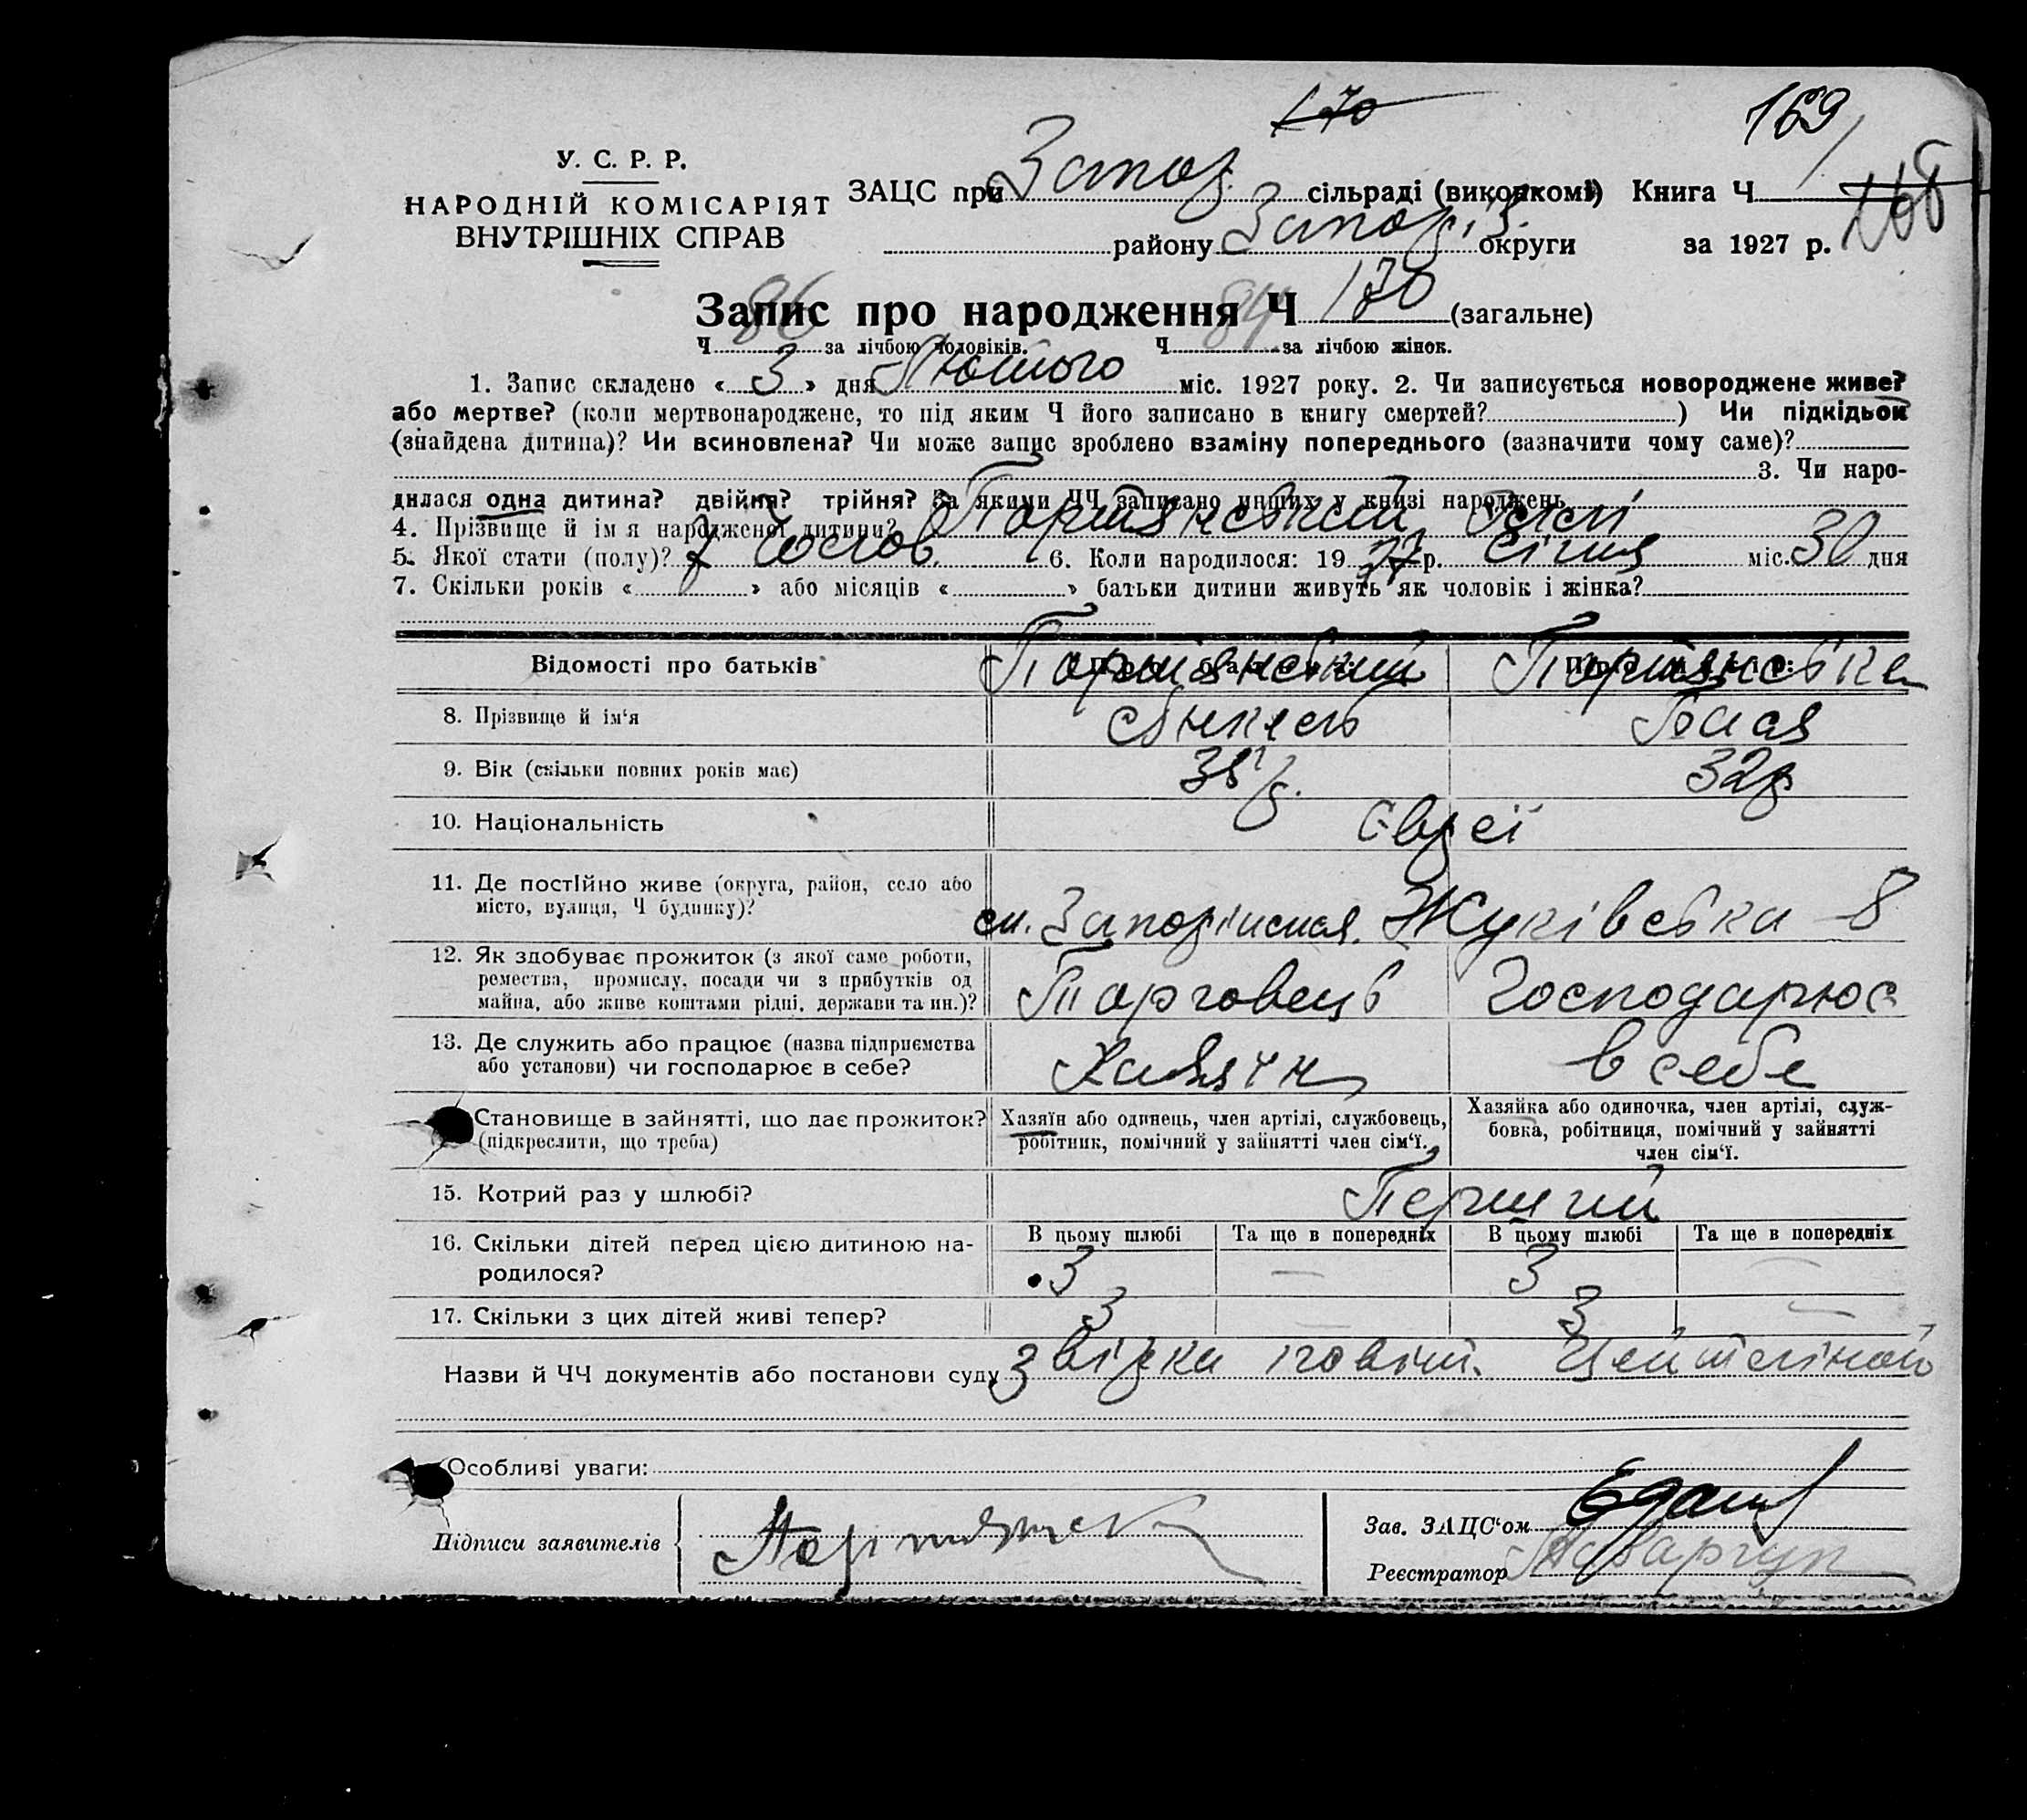 170
169
У. С. Р. Р.
НАРОДНІЙ КОМІСАРІЯТ
ВНУТРІШНІХ СПРАВ
ЗАЦС при Запор. сільраді (виконкомі) Книга Ч 168
району Запоріз. округи за 1927 р.
Запис про народження Ч 170 (загальне)
Ч 86 за лічбою чоловіків. Ч 84 за лічбою жінок.
1. Запис складено « 3 » дня Лютого міс. 1927 року. 2. Чи записується новороджене живе?
або мертве? (коли мертвонароджене, то під яким Ч його записано в книгу смертей? ) Чи підкідьок
(знайдена дитина)? Чи всиновлена? Чи може запис зроблено взаміну попереднього (зазначити чому саме)?
3. Чи наро-
дилася одна дитина? двійня? трійня? За якими ЧЧ записано инших у книзі народжень
4. Прізвище й ім я народженої дитини? Портянський
5. Якої стати (полу)? Чолов. 6. Коли народилося: 19 27 р. Січня міс. 30 дня
7. Скільки років « » або місяців « » батьки дитини живуть як чоловік і жінка?
Відомості про батьків Портянський Портянська
8. Прізвище й ім‘я Бася
9. Вік (скільки повних років має) 32р
10. Національність Євреї
11. Де постійно живе (округа, район, село або
місто, вулиця, Ч будинку)?
м. Запоріжжя. Жуківська 8
12. Як здобуває прожиток (з якої саме роботи,
ремества, промислу, посади чи з прибутків од
майна, або живе коштами рідні, держави та ин.)?
Торговець Господарює
13. Де служить або працює (назва підприємства
або установи) чи господарює в себе?
в себе
Становище в зайнятті, що дає прожиток?
(підкреслити, що треба)
Хазяїн або одинець, член артілі, службовець,
робітник, помічний у зайнятті член сім‘ї.
Хазяйка або одиночка, член артілі, служ-
бовка, робітниця, помічний у зайнятті
член сім‘ї.
15. Котрий раз у шлюбі? Перший
16. Скільки дітей перед цією дитиною на-
родилося?
В цьому шлюбі Та ще в попередніх В цьому шлюбі Та ще в попередніх
3 — 3 —
17. Скільки з цих дітей живі тепер? 3 — 3 —
Назви й ЧЧ документів або постанови суду
Особливі уваги:
Підписи заявителів
Зав. ЗАЦС‘ом
Реєстратор